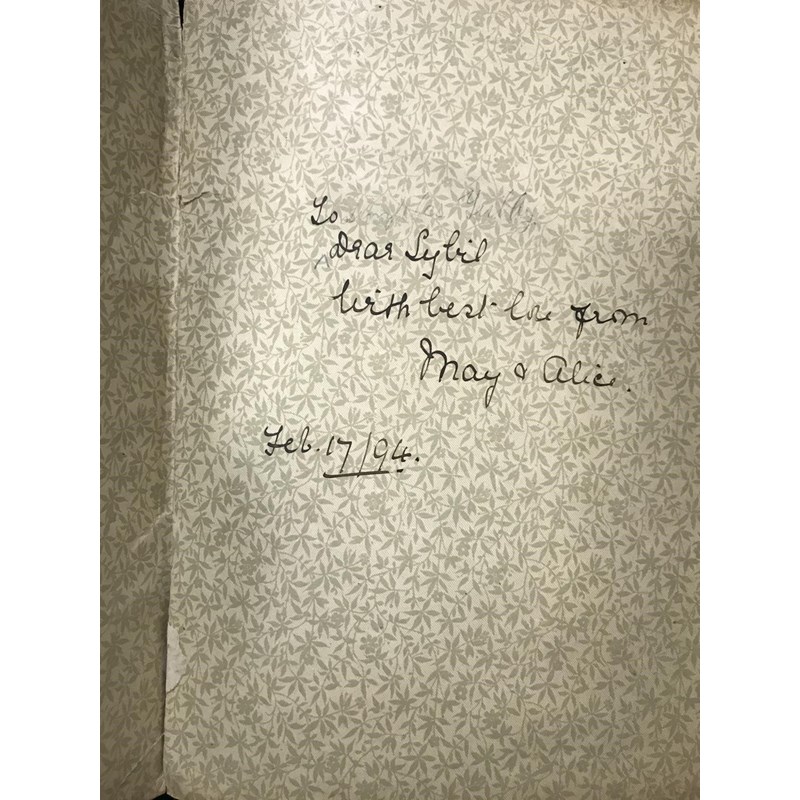 To
Dear Sybil
With best love from
May & Alice.
Feb. 17/94.